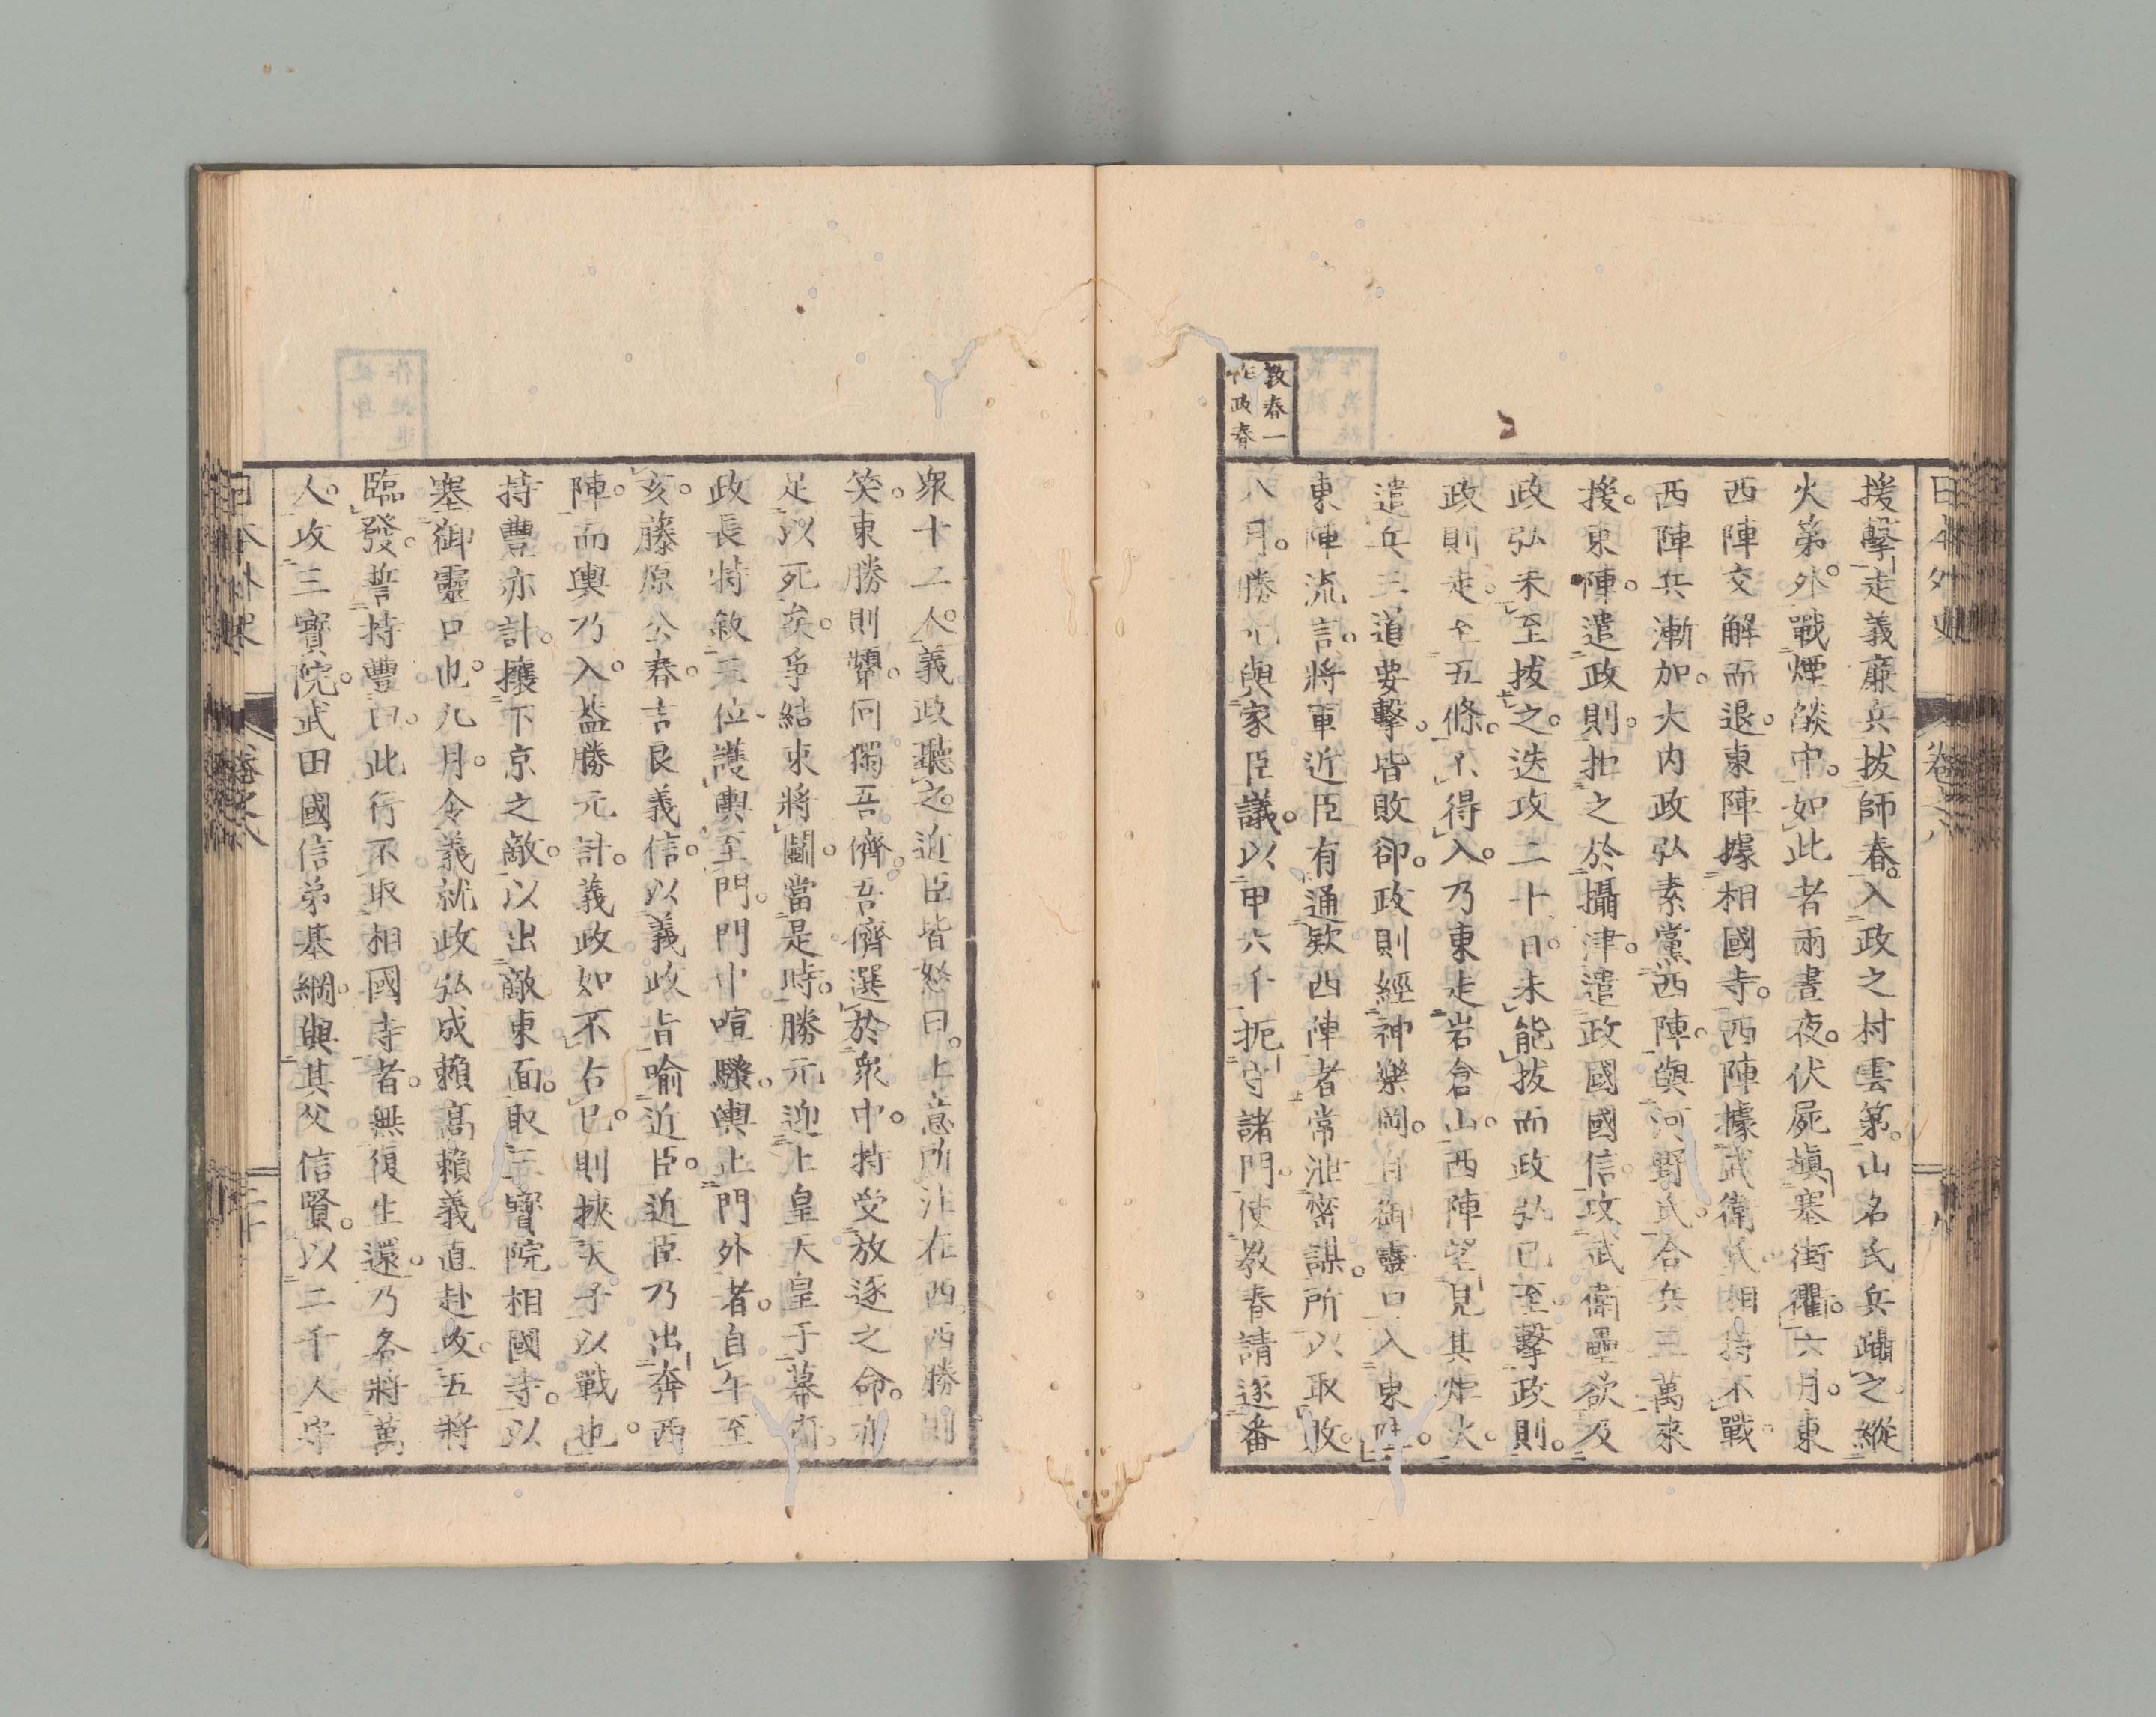 日本外史 卷之八
敎春一
作政春
援擊走義廉兵拔師春入政之村雲第山名氏兵躡之縱
火弟外戰煙燄中如此者兩晝夜伏屍塡塞街衢六月東
西陣交解而退東陣據相國寺西陣據武衛氏相持不戰
西陣兵漸加大內政弘素黨西陣與河野氏合兵三萬來
援東陣遣政則拒之於攝津遣政國國信攻武衛壘欲及
政弘未至拔之迭攻二十日未能拔而政弘已至擊政則
政則走至五條不得入乃東走岩倉山西陣望見其炬火
遣兵三道要擊皆敗卻政則經神樂岡自御靈口入東陣
東陣流言將軍近臣有通欵西陣者常泄密謀所以取敗
八月勝元與家臣議以甲六千扼守諸門使敎春請逐番
衆十二人義政聽之近臣皆怒曰上意所注在西西勝則
笑東勝則顰何獨吾儕吾儕選於衆中特受放逐之命亦
足以死矣爭結束將鬭當是時勝元迎上皇天皇于幕府
政長特敘三位護輿至門門中喧騷輿止門外者自午至
亥藤原公春吉良義信以義政旨喻近臣近臣乃出奔西
陣而輿乃入益勝元計義政如不右已則挾天子以戰也
持豐亦計攘下京之敵以出敵東面取三寶院相國寺以
塞御靈口也九月令義就政弘成賴高賴義直赴攻五將
臨發誓持豐曰此行不取相國寺者無復生還乃各將萬
人攻三寶院武田國信弟基綱與其父信賢以二千人守
日本外史 卷之八 二十